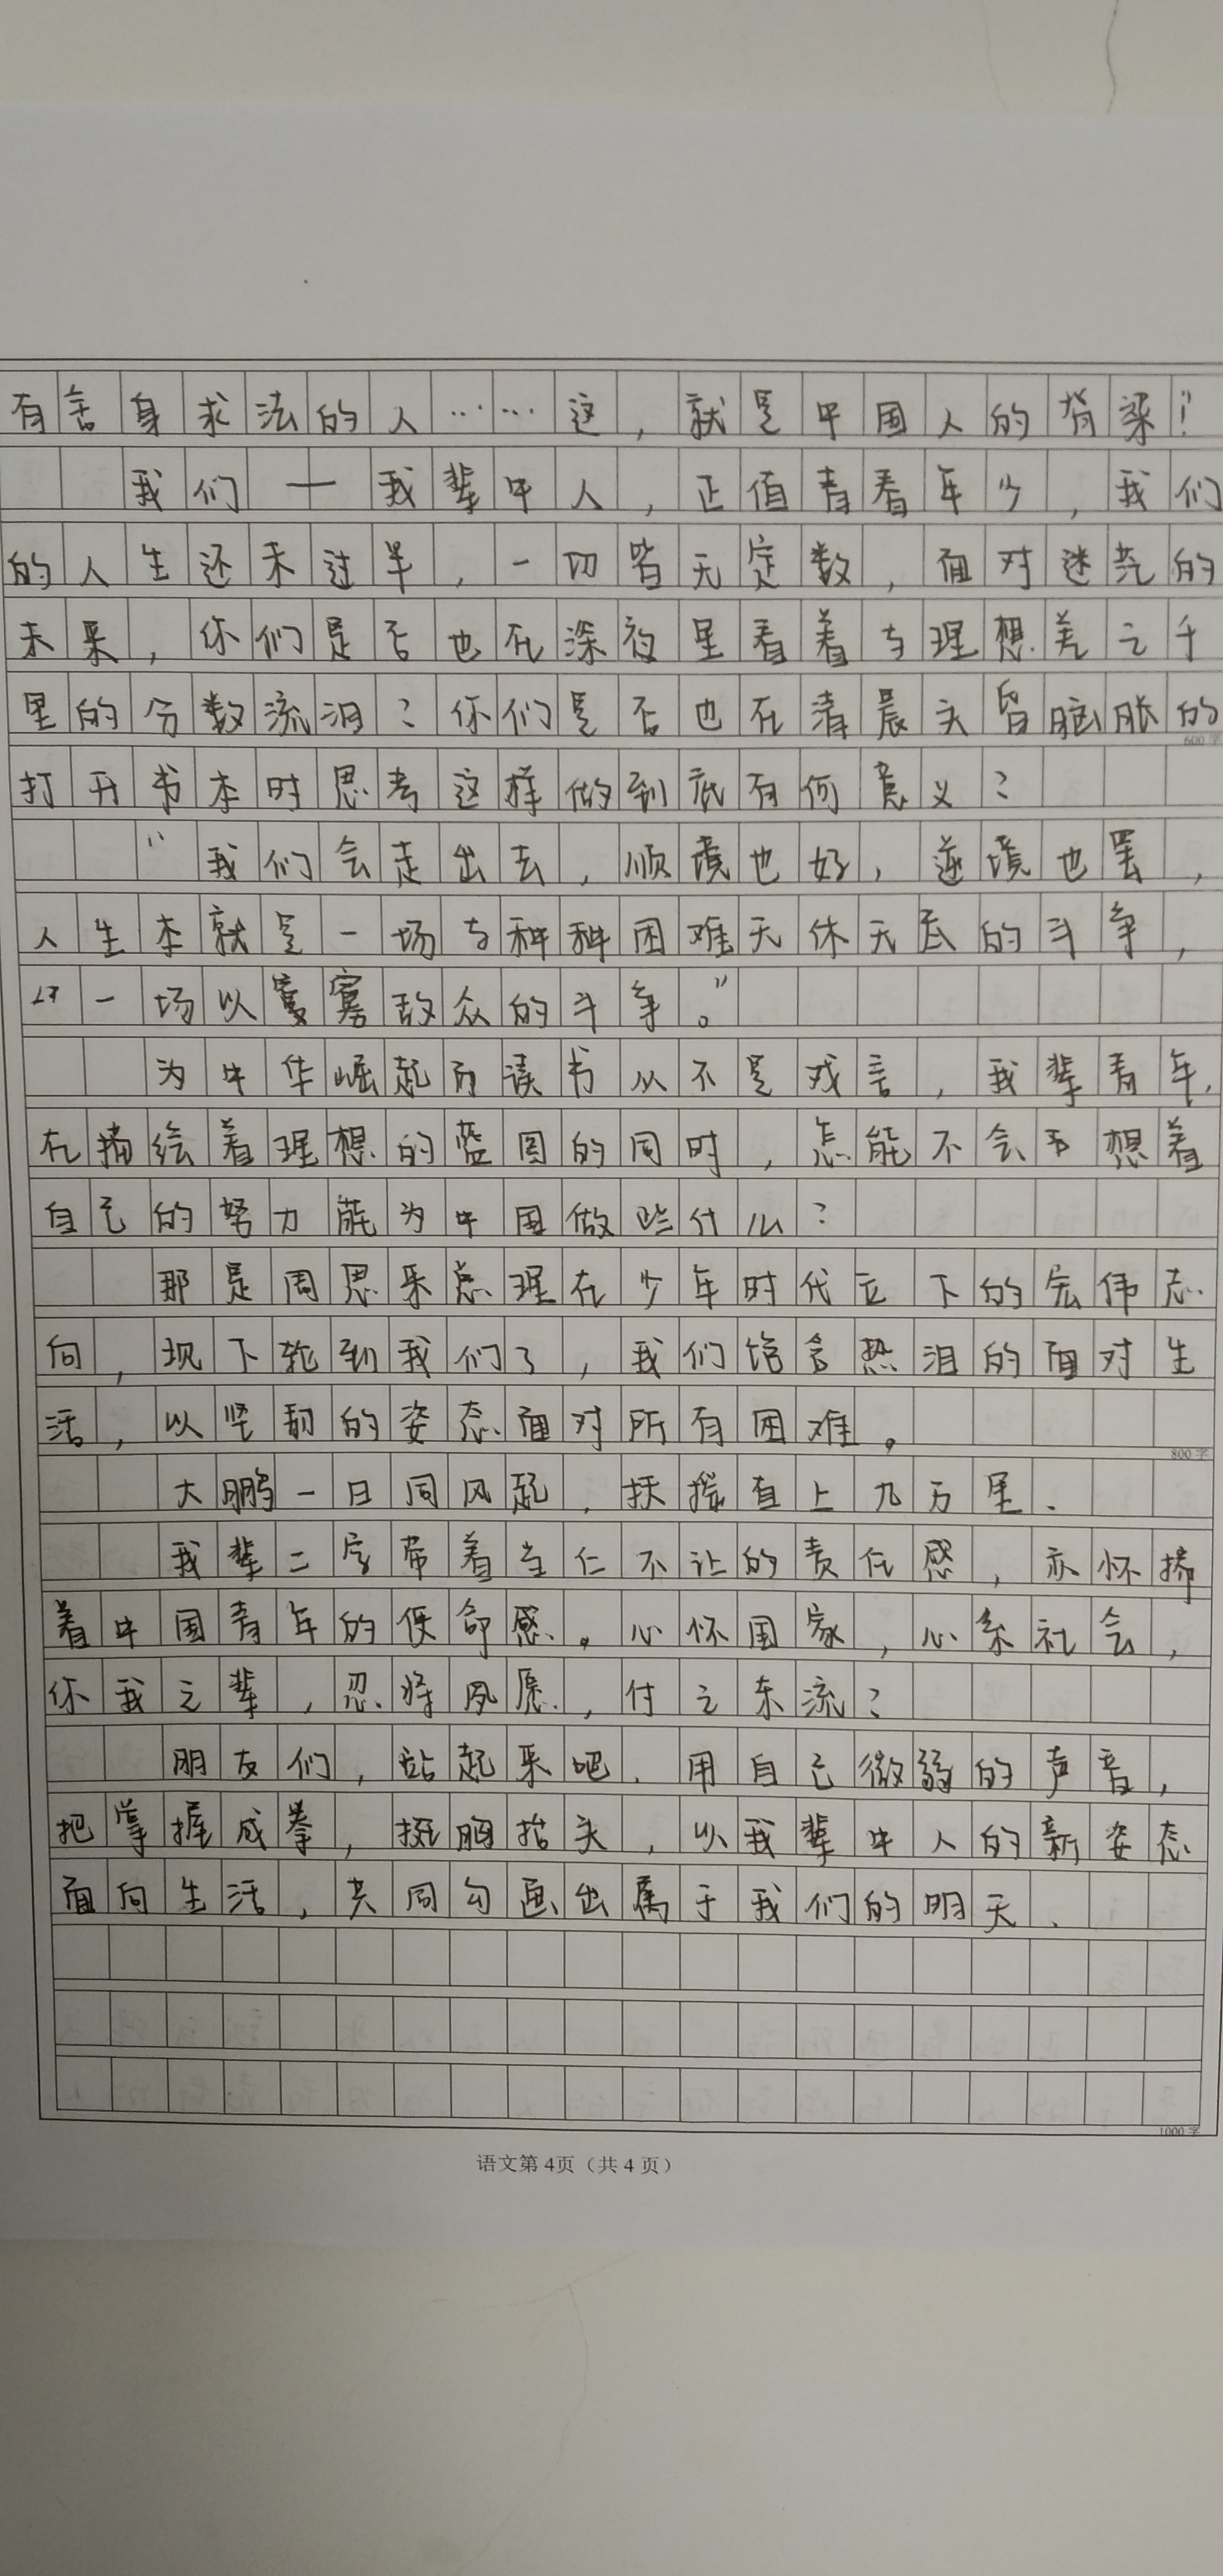 有舍身求法的人……这,就是中国人的脊梁!"
我们——我辈中人,正值青春年少,我们
的人生还未过半,一切皆无定数,面对迷茫的
未来,你们是否也在深夜里看着与理想差之千
里的分数流泪?你们是否也在清晨头昏脑胀的
600字
打开书本时思考这样做到底有何意义?
"我们会走出去,顺境也好,逆境也罢,
人生本就是一场与种种困难无休无止的斗争,
一场以寡敌众的斗争。"
为中华崛起而读书从不是戏言,我辈青年,
在描绘着理想的蓝图的同时,怎能不会想着
自己的努力能为中国做些什么?
那是周恩来总理在少年时代立下的宏伟志
向,现下轮到我们了,我们饱含热泪的面对生
活,以坚韧的姿态面对所有困难。
800字
大鹏一日同风起,扶摇直上九万里.
我辈二字带着当仁不让的责任感,亦怀揣
着中国青年的使命感。心怀国家,心系社会,
你我之辈,忍将夙愿,付之东流?
朋友们,站起来吧.用自己微弱的声音,
把掌握成拳,挺胸抬头,以我辈中人的新姿态
面向生活,共同勾画出属于我们的明天.
1000字
语文第4页(共4页)